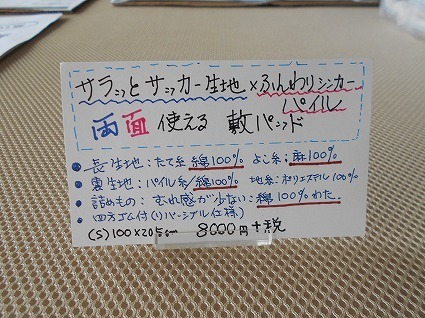 サラッとサッカー生地×ふんわりシンカー
パイル
両面使える敷パッド
・表生地:たて糸 綿100% よこ糸:麻100%
・裏生地:パイル糸/綿100% 地糸:ポリエステル100%
・詰めもの:むれ感が少ない:綿100%わた.
・四方ゴム付(リバーシブル仕様)
(S)100×205cm 8000円+税